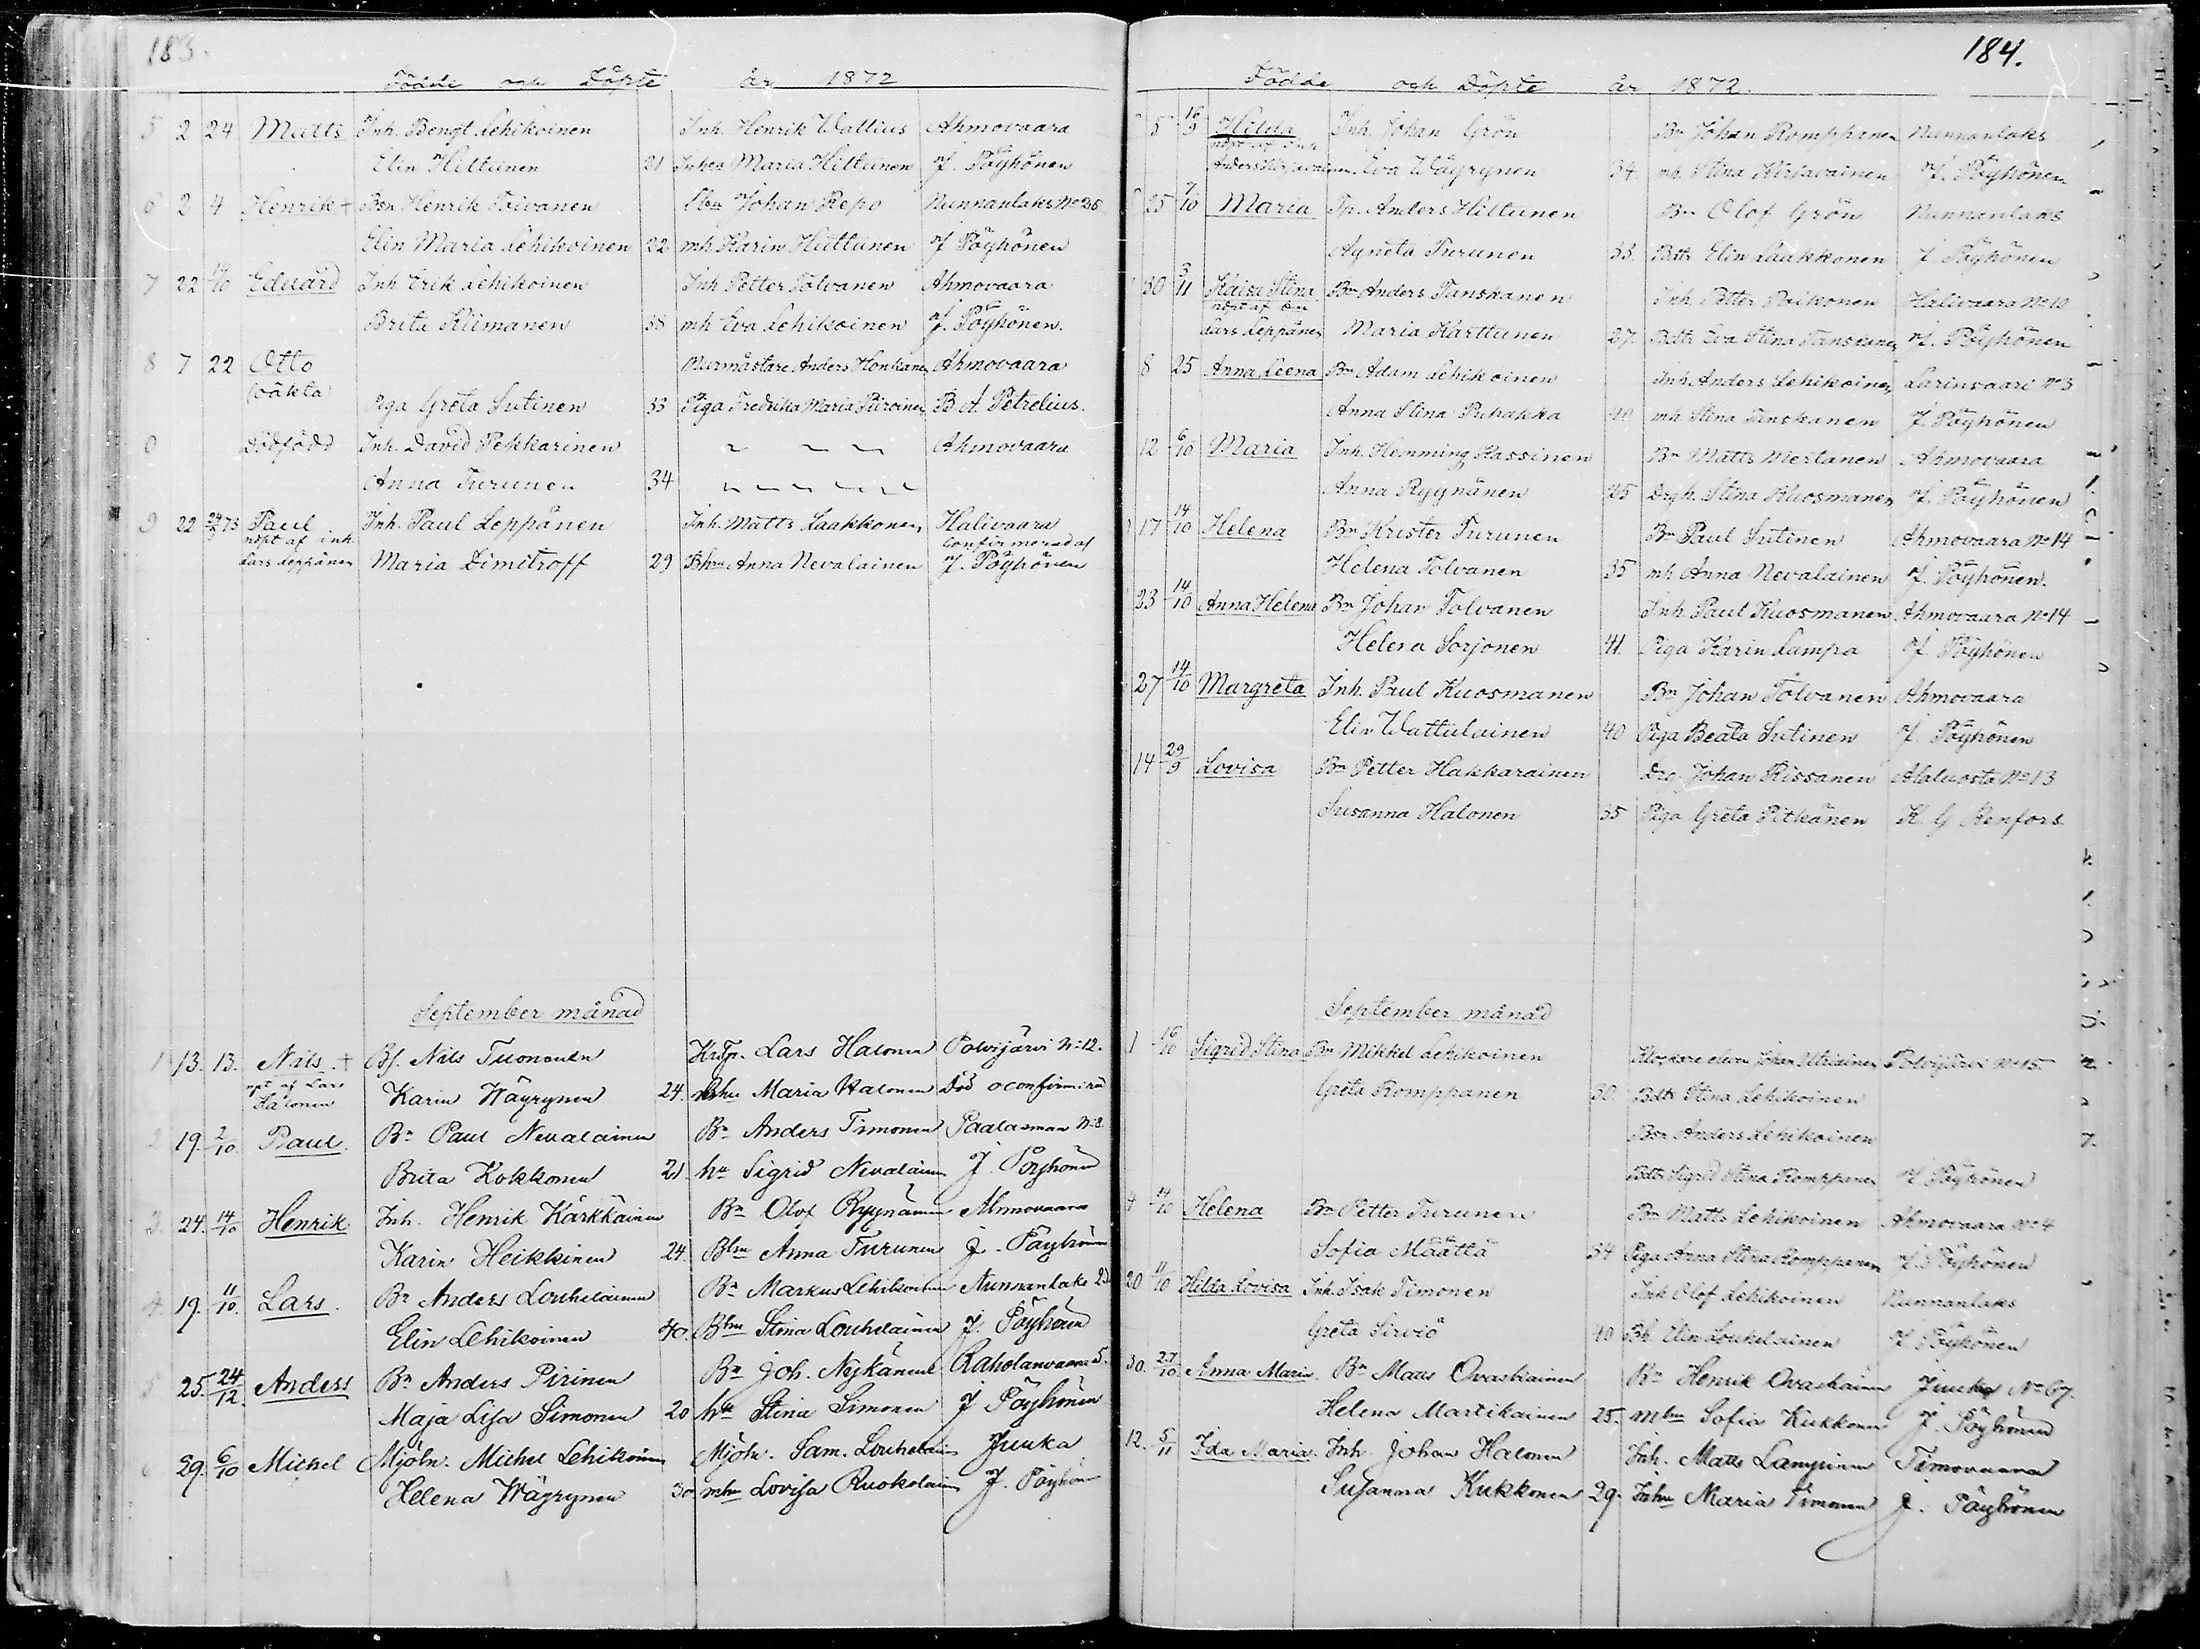 183.
Födde och Döpte år 1872
5 2 24 Matts Inh. Bengt Lehikoinen Inh. Henrik Wallius Ahmovaara
Elin Hiltunen 21 Maria Hiltunen J. Pöyhönen
6 2 4 Henrik + Bsn Henrik Toivanen Johan Repo Nunnanlaks No 26
Elin Maria Lehikoinen 22 mh. Karin Huttunen J. Pöyhönen
7 22 14/10 Eduard Inh Erik Lehikoinen Inh Petter Tolvanen Ahmovaara
Brita Kiimanen 38 mh Eva Lehikoinen J. Pöyhönen.
8 7 22 Otto Murmästare Anders Honkanen Ahmovaara
(oäkta) Piga Greta Sutinen 33 Piga Fredrika Maria Piiroinen B. A. Petrelius.
0 Dödfödd Inh. David Pekkarinen Ahmovaara
Anna Turunen 34
9 22 73 Paul Inh. Paul Leppänen Inh. Matts Laakkonen Halivaara
nöpt af inh. confirmerad af
Lars Leppänen Maria Dimitroff 29 Anna Nevalainen J. Pöyhönen
September månad
1 13. 13. Nils + Bs. Nils Tuononen Lars Halonen Polvijärvi No 12.
af Lars
Halonen Karin Wäyrynen 24. Maria Halonen Död oconfirmerad
2 19. 2/10. Paul. Bn Paul Nevalainen Bn Anders Timonen Paalasmaa No 8
Brita Kokkonen 21 hu Sigrid Nevalainen J. Pöyhönen
3. 24. 14/10 Henrik Inh. Henrik Kärkkäinen Bn Olof Ryynänen Ahmovaara
Karin Heikkinen 24. Anna Turunen J. Pöyhönen
4. 19. 11/10. Lars. Bn Anders Louhelainen Bn Markus Lehikoinen Nunnanlaks 23
Elin Lehikoinen 40. Stina Louhelainen J. Pöyhönen
5 25. 24/12. Anders Bn Anders Pirinen Bn Joh. Nykänen Raholanvaara 5.
Maja Lisa Simonen 20 hu Stina Simonen J Pöyhönen
6 29. 6/10 Michel Mjöln. Michel Lehikoinen Mjöln. Sam. Louhelainen Juuka
Helena Wäyrynen 30 Lovisa Ruokolainen J. Pöyhönen
184.
Födde och Döpte år 1872.
5 16/9 Hilda Inh. Johan Grön Bn Johan Romppanen Nunnanlaks
nöpt af Inh
Anders Eva Wäyrynen 34 mh. Stina Hirvavainen J. Pöyhönen
25 7/10 Maria Tp. Anders Hiltunen Bn Olof Grön Nunnanlaks
Agneta Turunen 33 Bdtr Elin Laakkonen J. Pöyhönen
30 3/11 Kaisa Stina Bn Anders Tanskanen Inh. Petter Halivaara No 10
nöpt af
Lars Leppänen Maria Karttunen 27. Bdtr Eva Stina Tanskanen J. Pöyhönen
8 25 Anna Leena Bn Adam Lehikoinen Inh. Anders Lehikoinen Larinsaari No 3
Anna Stina Puhakka 40 mh Stina Tanskanen J. Pöyhönen
12 6/10 Maria Inh. Hemming Hassinen Bn Matts Mertanen Ahmovaara
Anna Ryynänen 25 Drgh. Stina Kuosmanen J. Pöyhönen
17 14/10 Helena Bn Krister Turunen Bn Paul Sutinen Ahmovaara No 14
Helena Tolvanen 35 mh Anna Nevalainen J. Pöyhönen.
23 14/10 Anna Helena Bn Johan Tolvanen Inh Paul Kuosmanen Ahmovaara No 14
Helena Sorjonen 41. Piga Karin Lampa J. Pöyhönen
27 14/10 Margreta Inh. Paul Kuosmanen Bn Johan Tolvanen Ahmovaara
Elin Wattulainen 40 Piga Beata Sutinen J. Pöyhönen
14 29/9 Lovisa Bn Petter Hakkarainen Drg. Johan Rissanen Alaluosta No 13
Susanna Halonen 35 Piga Greta Pitkänen K. G Renfors.
September månad
1 16/10 Sigrid Stina Bn Mikkel Lehikoinen Johan Polvijärvi No 15.
Greta Romppanen 30 Bdtr Stina Lehikoinen
Bsn Anders Lehikoinen
Bdtr Sigrid Stina Romppanen J. Pöyhönen
4 14/10 Helena Bn Petter Turunen Bn Matts Lehikoinen Ahmovaara No 4
Sofia Määttä 34 Piga Anna Stina Romppanen J. Pöyhönen
20 11/10 Hilda Lovisa Inh. Isak Timonen Inh Olof Lehikoinen Nunnanlaks
Greta Sirviö 40 Bh. Elin Louhelainen J. Pöyhönen
30. 27/10. Anna Maria. Bn Maus Ovaskainen Bn Henrik Ovaskainen Juuka No 67.
Helena Martikainen 25. Sofia Kukkonen J. Pöyhönen
12. 5/11 Ida Maria. Inh Johan Halonen Inh. Matts Lampinen Timovaara
Susanna Kukkonen 29. Maria Timonen J. Pöyhönen